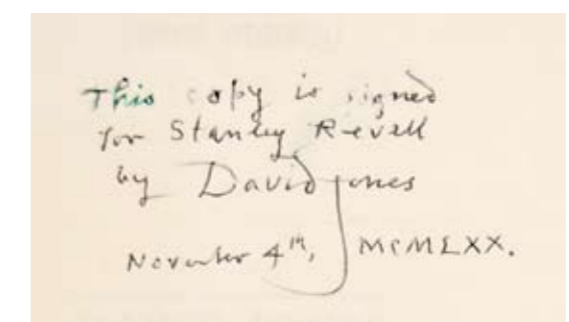 This copy is signed
for Stanley Revell
by David Jones
November 4th, MCMLXX.